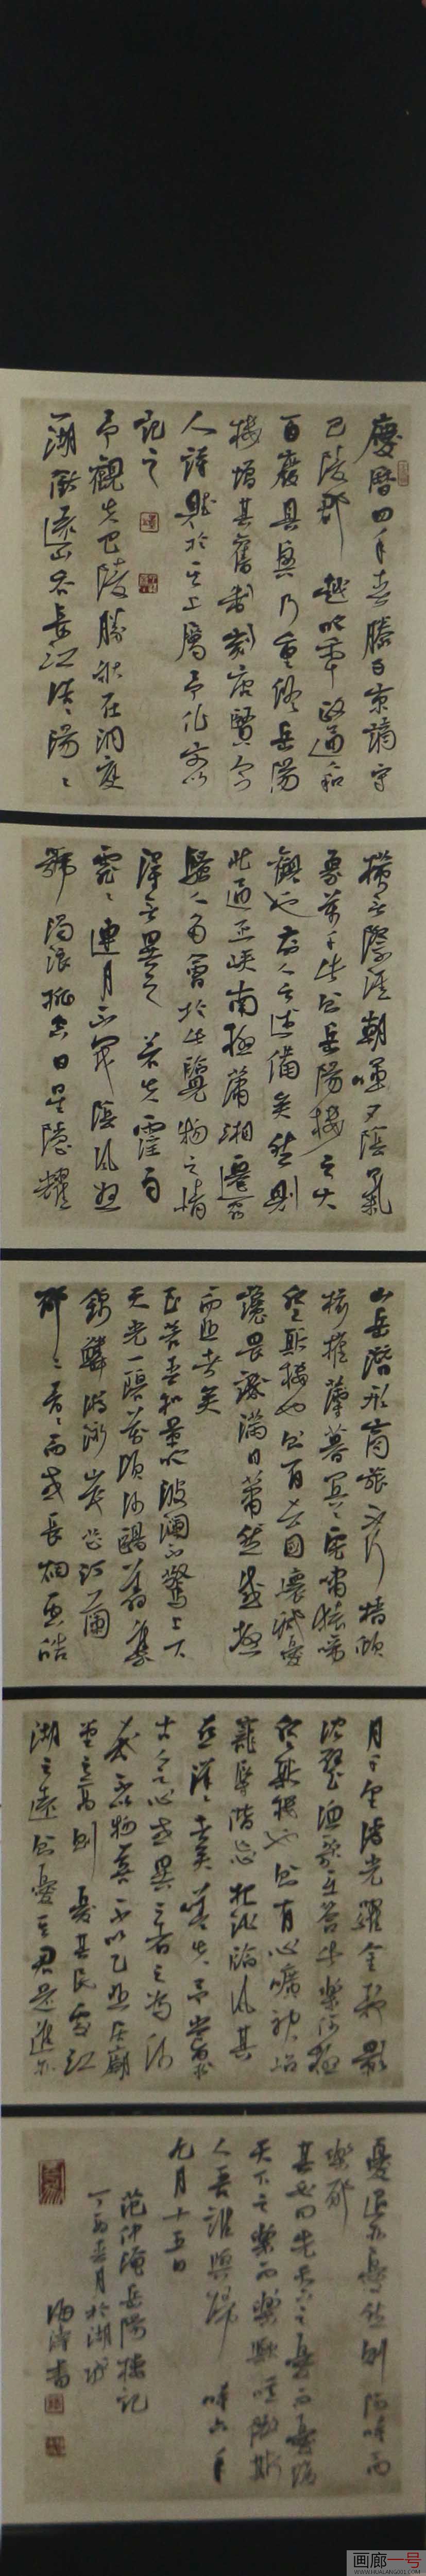 慶曆四年春滕子京謫守
巴陵郡 越明年政通和
百廢具興乃重修岳陽
樓增其舊制刻唐賢今
人詩賦於其上屬予作文以
記之
予觀夫巴陵勝狀在洞庭
一湖銜遠山吞長江浩浩湯湯
橫無際涯朝暉夕陰氣
象萬千此則岳陽樓之大
觀也前人之述備矣然則
北通巫峽南極瀟湘遷客
騷人多會於此覽物之情
得無異乎 若夫霪雨
霏霏連月不開陰風怒
號濁浪排空日星隱耀
山岳潛形商旅不行檣傾
楫摧薄暮冥冥虎嘯猿啼
登斯樓也則有去國懷鄉憂
讒畏譏滿目蕭然感極
而悲者矣
至若春和景明波瀾不驚上下
天光一碧萬頃沙鷗翔集
錦鱗游泳岸芷汀蘭
郁郁青青而或長煙一空皓
月千里浮光躍金靜影
沉璧漁歌互答此樂何極
登斯樓也則有心曠神怡
寵辱偕忘把酒臨風其
喜洋洋者矣嗟夫予嘗求
古仁人之心或異二者之為何
哉不以物喜不以己悲居廟
堂之高則憂其民處江
湖之遠則憂其君是進亦
憂退亦憂然則何時而
樂耶
其必曰先天下之憂而憂後
天下之樂而樂歟噫微斯
人吾誰與歸 時六年
九月十五日
范仲淹岳陽樓記
丁亥春月於湖城
海濤書
画廊一号
WWW.HUALANG01.COM